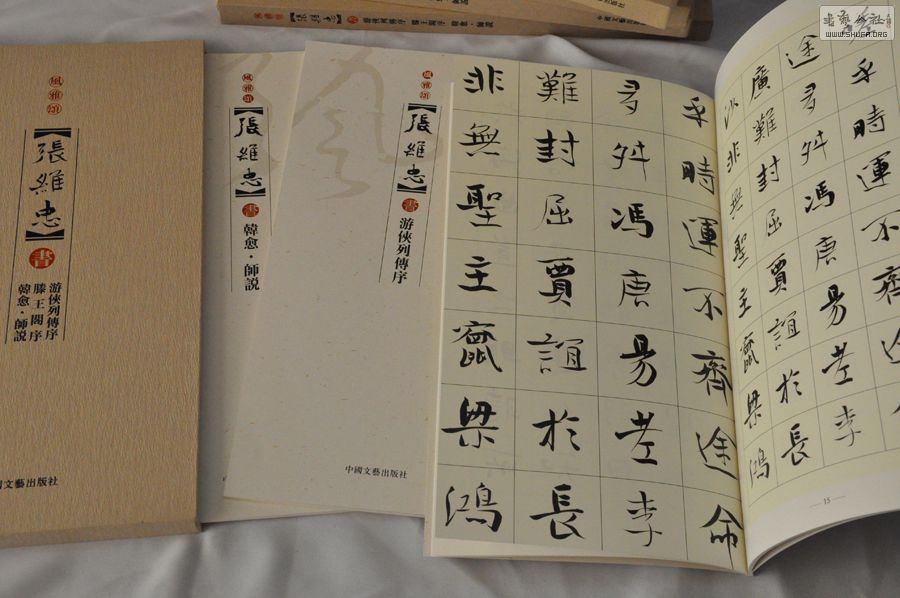 書藝公社
WWW.SHUFA.ORG
風雅頌【張維忠】書
游俠列傳序 滕王閣序 韓愈·師説
中國文藝出版社
風雅頌
【張維忠】
書
游俠列傳序
滕王閣序
韓愈·師説
國文藝出版社
風雅頌
【張維忠】
書
韓愈·師説
風雅頌
【張維忠】
書
游俠列傳序
中國文藝出版社
乎時運不齊途命
多舛馮唐易老李
難封屈賈誼於長
非無聖主竄梁鴻
乎時運不齊途
途多舛馮唐易老李
廣難封屈賈誼於長
沙非無聖主竄梁鴻
15